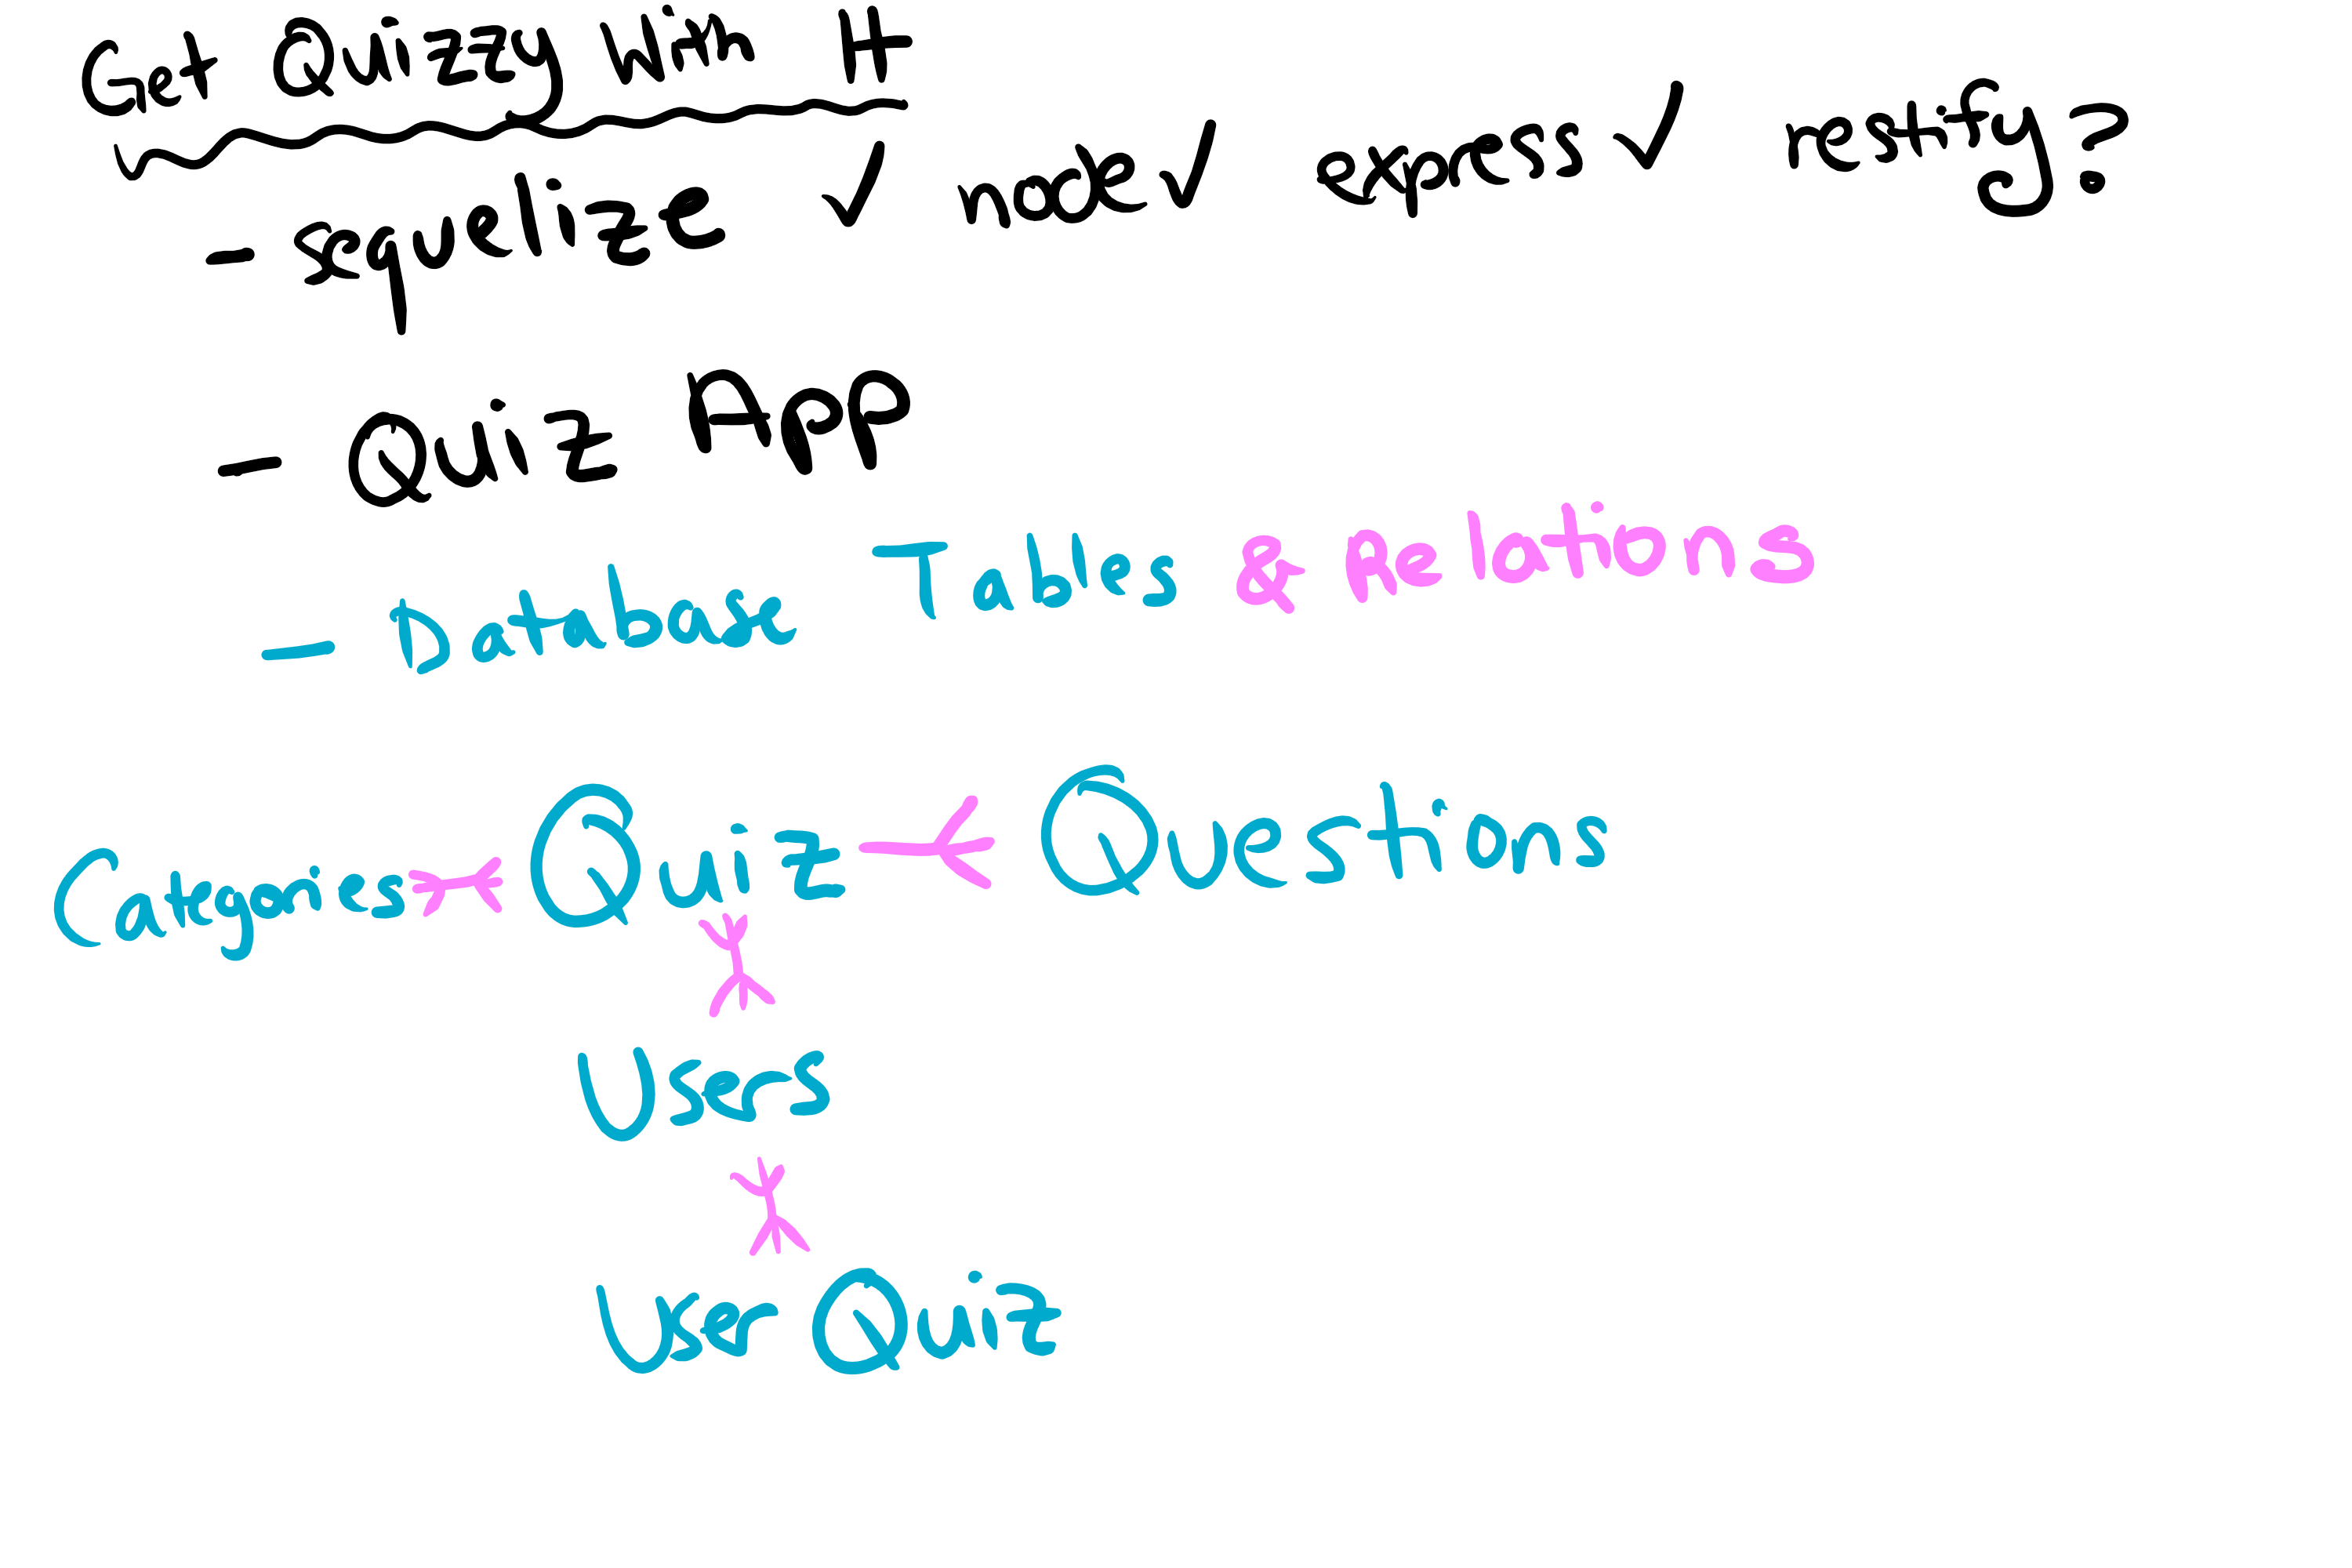 Get Quizzy With It
- sequelize ✓ node ✓ express ✓ restify?
- Quiz App
- Database Tables & Relations
Categories Quiz Questions
Users
User Quiz